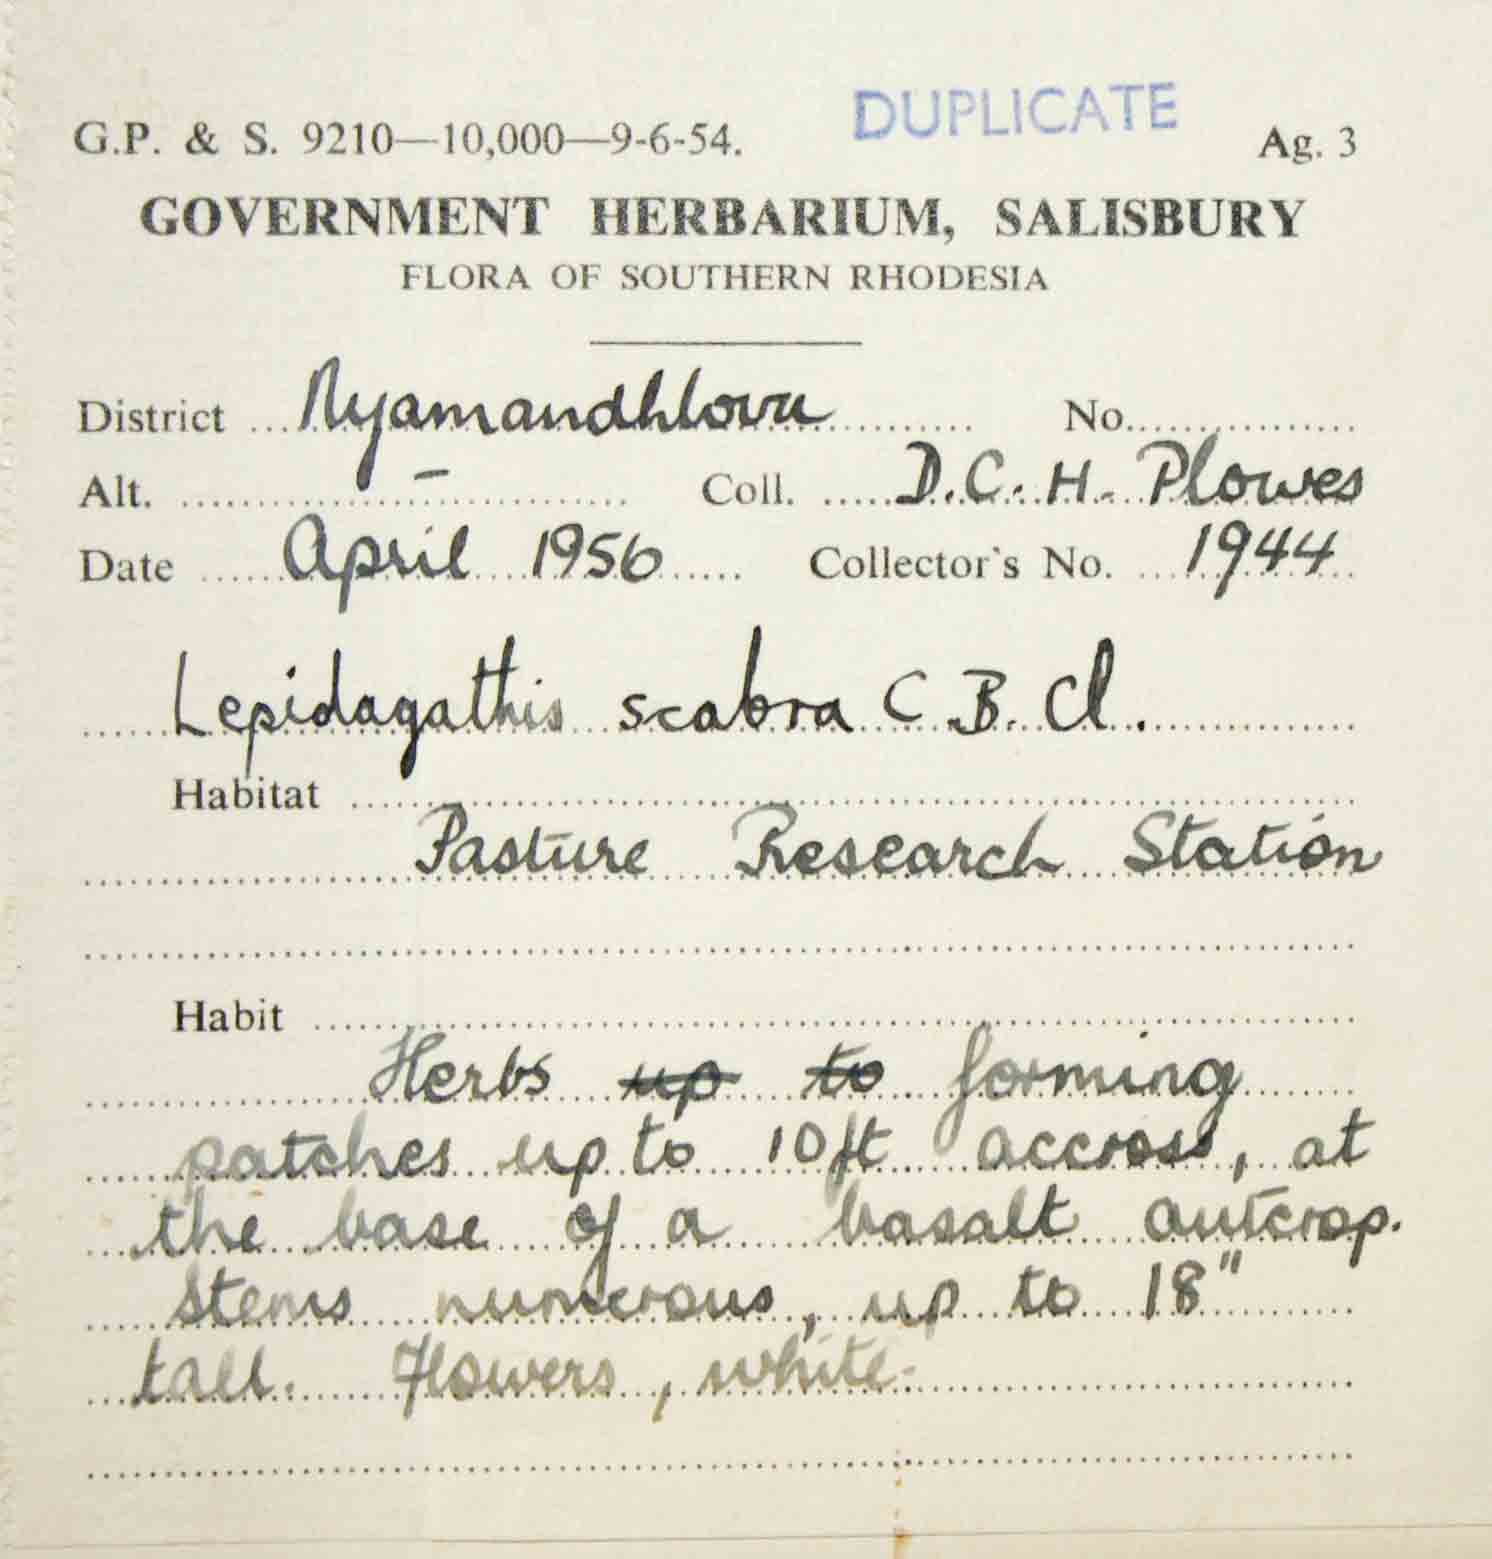 DUPLICATE
G.P. & S. 9210—10,000—9-6-54. Ag. 3
GOVERNMENT HERBARIUM, SALISBURY
FLORA OF SOUTHERN RHODESIA
District Nyamandhlovu No.
Alt. – Coll. D.C.H. Plowes
Date April 1956 Collector's No. 1944
Lepidagathis scabra C B. Cl.
Habitat
Pasture Research Station
Habit
Herbs up to forming
patches up to 10ft accross, at
the base of a basalt outcrop.
Stems numerous, up to 18"
tall. Flowers, white.